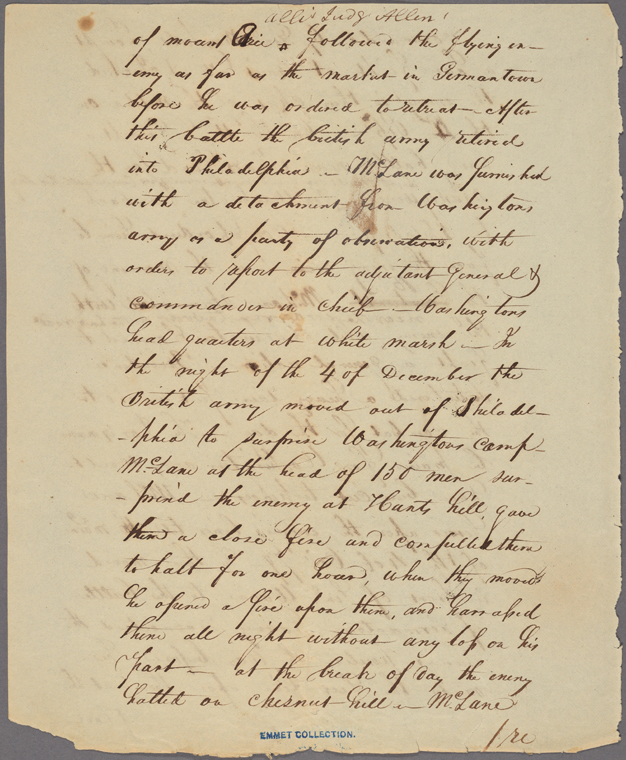 allis Judg Allen
of mount Arie & followed the flying en-
-emy as far as the market in Germantown
before he was ordered to retreat - After
this battle the british army retired
into Philadelphia - McLane was furnished
with a detachment from Washingtons
army as a party of observation, with
orders to report to the adjutant General &
commander in cheif - Washingtons
head quarters at white marsh - In
the night of the 4 of December the
British army moved out of Philadel-
-phia to surprise Washingtons camp -
McLane at the head of 150 men sur-
-prised the enemy at Hunts hill, gave
them a close fire and compelled them
to halt for one hour, when they moved
he opened a fire upon them, and harrassed
them all night without any loss on his
part - at the break of day the enemy
halted on chesnut hill - McLane
/re
EMMET COLLECTION.